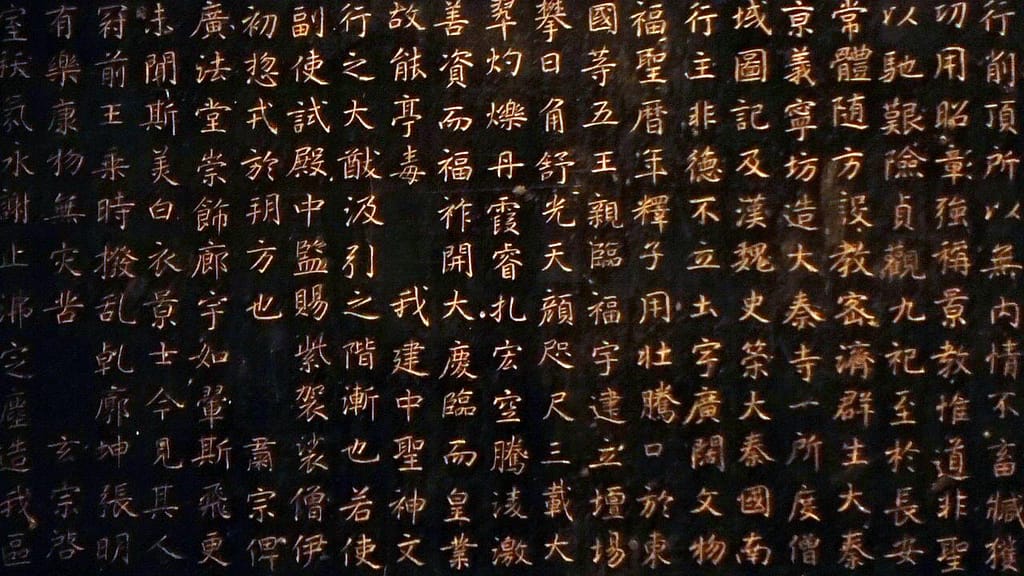 行削頂所以無内情不畜臧獲
功用昭彰強稱景教惟道非聖
以馳艱險貞觀九祀至於長安
常體随方設教密濟群生大秦
京義寧坊造大秦寺一所度僧
域圖記及漢魏史策大秦國南
行主非德不立土宇廣闊文物
福聖曆年釋子用壯騰口於東
國等五王親臨福宇建立壇場
攀日角舒光天顔咫尺三載大
翠灼爍丹霞睿扎宏空騰淩激
善資而福祚開大慶臨而皇業
故能亭毒 我建中聖神文
行之大猷汲引之階漸也若使
副使試殿中監賜紫袈裟僧伊
初惣戎於朔方也 肅宗俾
廣法堂崇飾廊宇如翬斯飛更
未聞斯美白衣景士今見其人
冠前王乗時撥乱乹廓坤張明
有樂康物無灾苦 玄宗啓
室祆氛永謝止沸定塵造我區